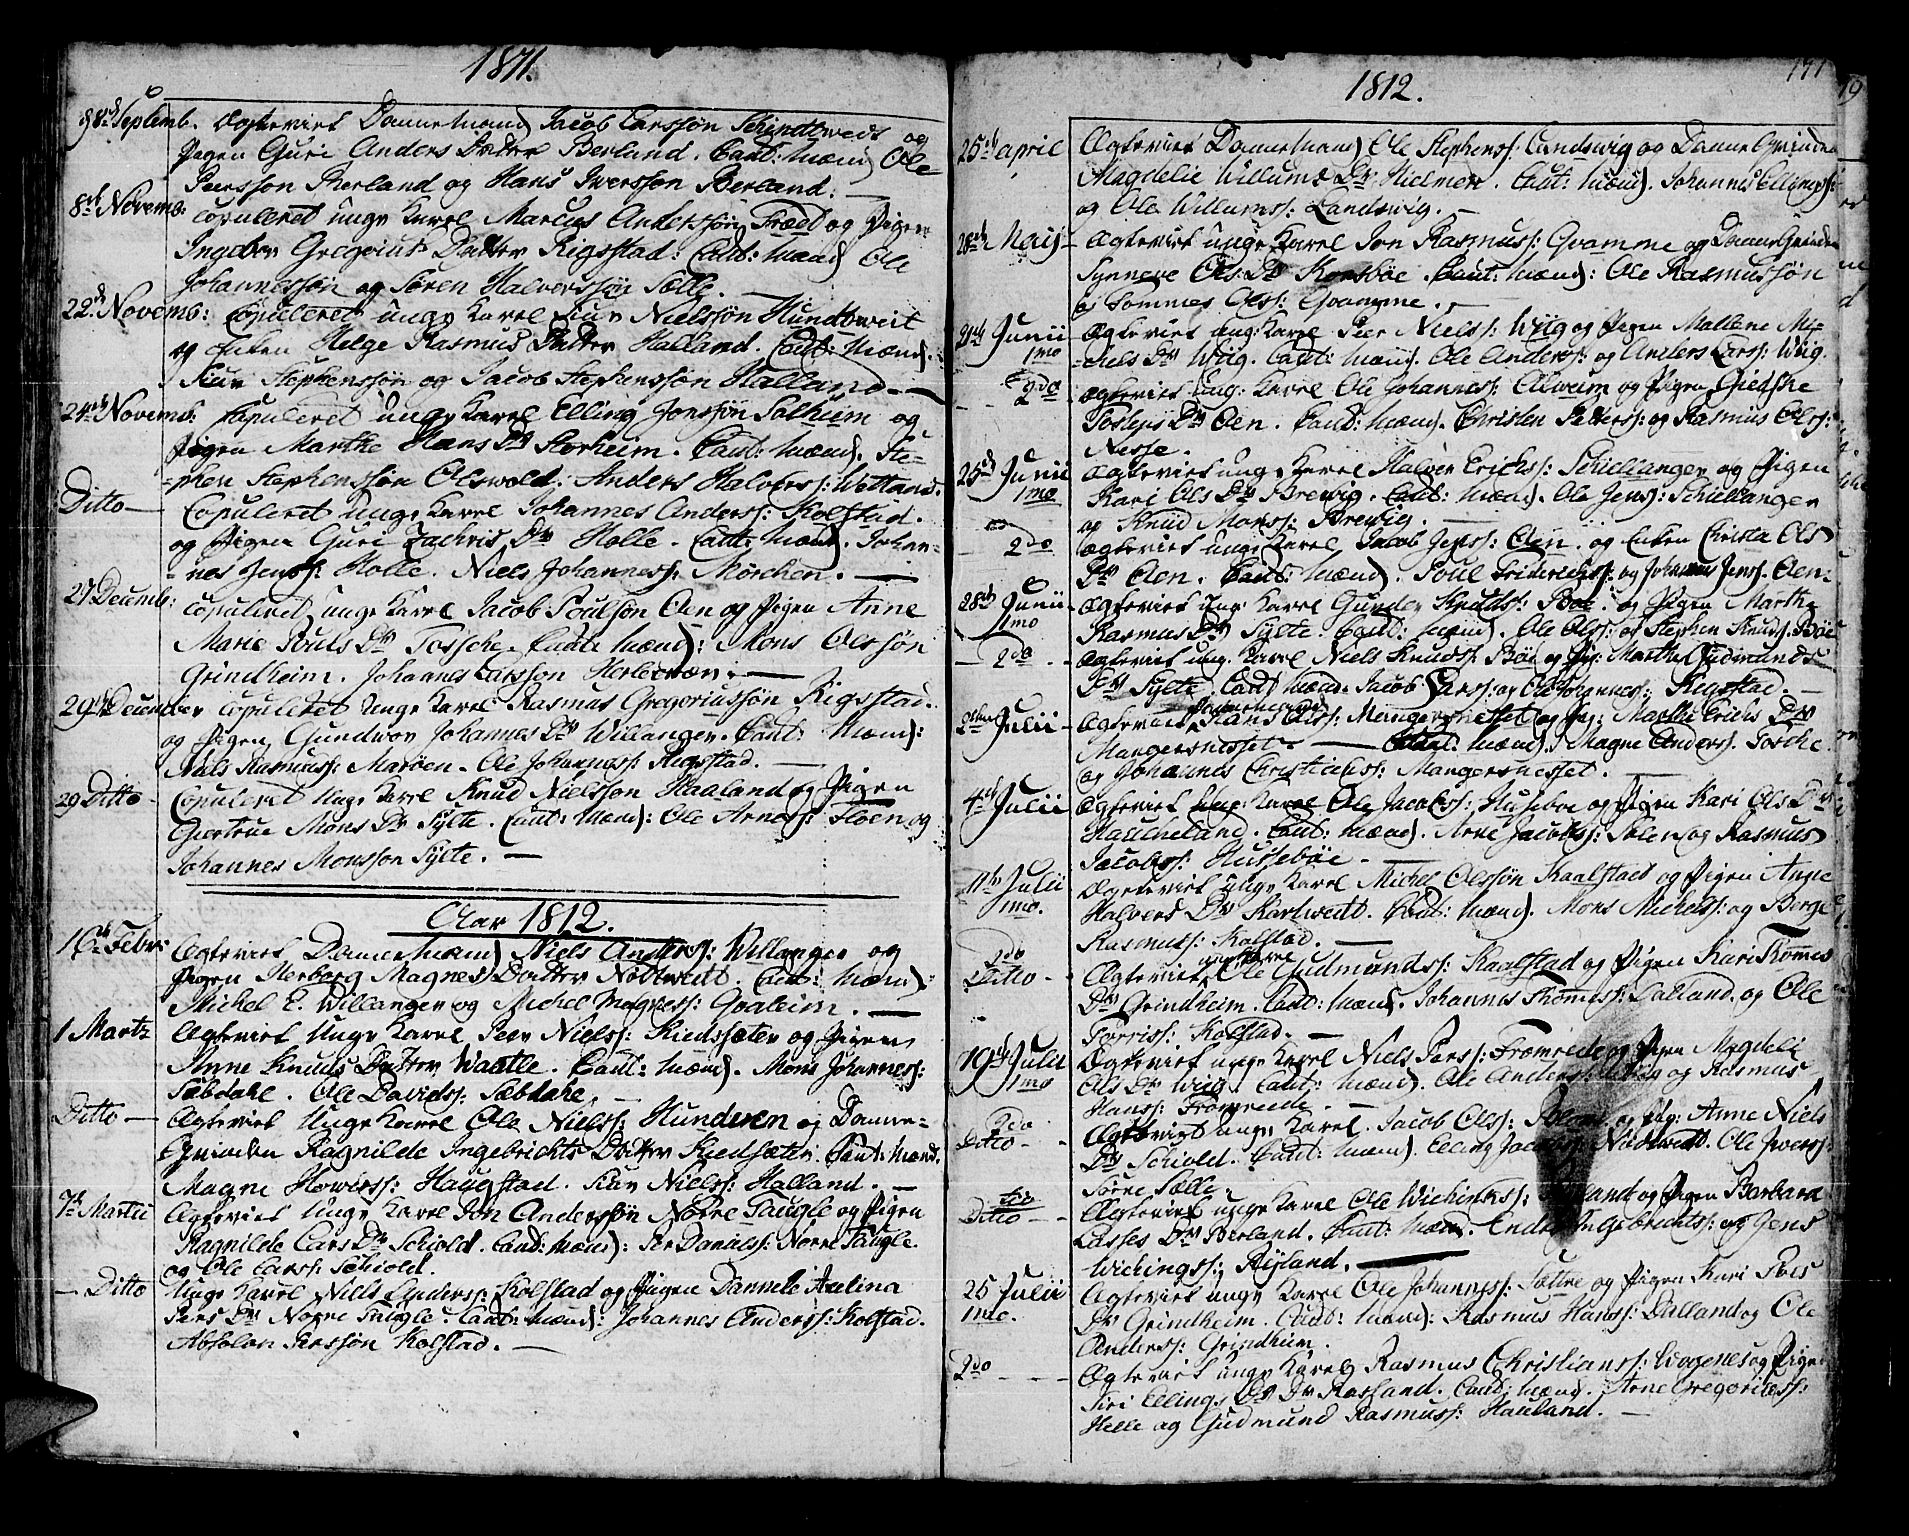 1811.
98de Septemb. Ægteviet Dannemand Jacob Larssøn Skindtweds og
Pigen Guri Anders Datter Berland. Caut: Mænd Ole
Peerssøn Berland og Hans Iverssøn Berland.
8de Novemb: Copuleret Unge Karl Marcus Anderssøn Frædt og Pigen
Ingebor Gregorius Datter Rigsstad: Caut: Mænd Ole
Johannessøn og Søren Halverssøn Sælle.
22d Novemb: Copuleret unge Karl Siur Nielssøn Hundtweit
og Enken Helge Rasmus Datter Halland. Caut: Mænd.
Siur Stephenssøn og Jacob Stephenssøn Halland.
24de Novemb: Copuleret unge Karl Elling Jonssøn Solheim og
Pigen Marthe Hans Dr Storheim. Caut: Mænd. Ste-
-phen Stephenssøn Olswold. Anders Halvers: Wetland.
Ditto — Copuleret unge Karl Johannes Anderss: Kolstad.
og Pigen Guri Zachris Dr Holle. Caut: Mænd. Johan-
-nes Jenss: Holle. Niels Johanness: Mørchen. —
27 Decemb: Copuleret unge Karl Jacob Poulsøn Oen og Pigen Anne
Marie Pouls Dr Tossche. Caut: Mænd: Mons Olssøn
Grindheim. Johannes Larssøn Herlevær. —
29de December Copuleret Unge Karl Rasmus Gregoriussøn Rigsstad.
og Pigen Gundwor Johannes Dr Willanger. Caut: Mænd:
Niels Rasmuss: Marøen. Ole Johanness: Rigsstad. —
29 Ditto - Copuleret Unge Karl Knud Nielssøn Haaland og Pigen
Giertrue Mons Dr Sylte. Caut: Mænd: Ole Arness: Floen og
Johannes Monssøn Sylte. —
Aar 1812.
16de Febr: Ægteviet Dannemand Niels Anderss: Willanger og
Pigen Herborg Magnes Datter Nødtwedt. Caut: Mænd:
Michel E. Willanger og Michel Magness: Qvaleim. —
1 Martz Ægteviet Unge Karl Peer Nielss: Kiedssæter og Pigen
Anne Knuds Datter Waatle. Caut: Mænd. Mons Johanness:
Sæbdahl. Ole Davidss: Sæbdahl. —
Ditto — Ægteviet Unge Karl Ole Nielss: Hundven og Danne-
Qvinden Ragnilde Ingebrichts Datter Kiedsæter. Caut: Mænd.
Magne Howerss: Haugstad. Siur Nielss: Halland. —
7de Martii Ægteviet Unge Karl Jon Anderssøn Nørre Taugle og Pigen
Ragnilde Lars Dr Schiold. Caut: Mænd: Per Danielss: Nørre Taugle
og Ole Larss: Schiold.
— Ditto Unge Karl Niels Anderss: Kolstad og Pigen Dannele Aalina
Pers Dr Nørre Taugle. Caut: Mænd: Johannes Anderss: Kolstad.
Absolon Perssøn Kolstad. —
1812.
25de April Ægteviet Dannemand Ole Stephenss: Lundswig og Danne Qvinden
Magdelie Willums Dr Hielmen. Caut: Mænd. Johannes Ellingss:
og Ole Willumss: Landswig. —
28de Maij - Ægteviet unge Karl Jon Rasmuss: Qvamme og Danne Qvinden
Synneve Ols Dr Korsbøe. Caut: Mænd: Ole Rasmussøn
og Sommes Olss: Qvamme. —
21de Junii 1mo Ægteviet Ung: Karl Peer Nielss: Wiig og Pigen Mallene Mi-
-chels Dr Wiig. Caut: Mænd. Ole Anderss: og Anders Larss: Wiig.
2do Ægteviet Ung: Karl Ole Johanness: Alveim og Pigen Giedske
Tosleps Dr Oen. Caut: Mænd. Christen Petterss: og Rasmus Olss:
Nesse.
25d Junii 1mo Ægteviet unge Karl Halver Ericks: Schiellanger og Pigen
Kari Ols Dr Brewig. Caut: Mænd. Ole Jenss: Schiellanger
og Knud Monss: Brewig. —
2do Ægteviet unge Karl Jacob Jenss: Oen. og Enken Christa Ols
Dr Oen. Caut: Mænd. Poul Friderichss: og Johannes Jenss: Oen.
28de Junii 1mo - Ægteviet Ung: Karl Gunder Knuds: Bøe. og Pigen Marthe
Rasmus Dr Sylte. Caut: Mænd. Ole Olss: og Stephen Knuds: Bøe
— 2do - - Ægteviet Ung. Karl Niels Knudss: Bøe og Pig: Marthe Gudmunds
Dr Sylte. Caut: Mænd. Jacob Larss: og Ole Johanness: Rigsstad. —
2den Julii - Ægteviet Dannemand Hans Olss: Mangersnesset og Pig: Marthe Erichs Dr
Mangersnesset. — Caut: Mænd. Magne Anderss. Tosche.
og Johannes Christichss: Mangersnesset. —
4de Julii Ægteviet Ung: Karl Ole Jacobss: Husebøe og Pigen Kari Ols Dr
Haucheland. Caut: Mænd. Arne Jacobss: Solem og Rasmus
Jacobss: Hussebøe. —
11te Julii 1mo. Ægteviet unge Karl Michel Olssøn Kaalstad og Pigen Anne
Halvers Dr Kartwedt. Caut: Mænd. Mons Michelss: og Børge
Rasmuss: Kolstad. —
2do Ditto - Ægteviet unge Karl Ole Gudmundss: Kaalstad og Pigen Kari Thomes
Dr Grindheim. Caut: Mænd. Johannes Thomess: Dalland. og Ole
Torriss: Kolstad. —
19de Julii 1mo Ægteviet unge Karl Niels Pers: Fromreide og Pigen Magdeli
Ols Dr Wiig. Caut: Mænd. Ole Anderss: Wiig og Rasmus
Hanss: Fromreide. —
2do Ditto - Ægteviet unge Karl. Jacob Olss: og Pig: Anne Niels
Dr Schiold. Caut: Mænd. Elling Jacobss: Nødtwedt. Ole Iverss:
Sørre Sælle.
Ditto - - Ægteviet unge Karl Ole Wichingss: Rijland og Pigen Barbara
Lasses Dr Berland. Caut: Mænd. Ender Ingebrichtss: og Jens
Wichingss: Rijland. —
25 Julii 1mo. Ægteviet unge Karl Ole Johanness: Sættre og Pigen Kari Pers
Dr Grindheim. Caut: Mænd: Rasmus Hanss: Dalland og Ole
Anderss: Grindheim.
2do - - - Ægteviet unge Karl Rasmus Christianss: Wogenes og Pigen
Siri Ellings Dr Rasland. Caut: Mænd. Arne Gregoriuss:
Helle og Gudmund Rasmuss: Hauland. —